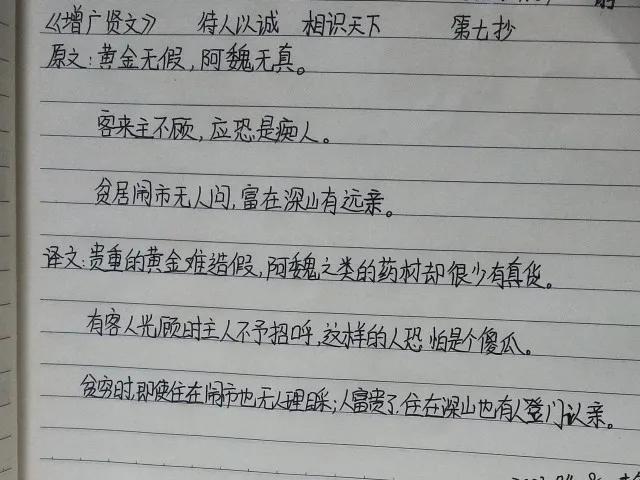 《增广贤文》 待人以诚 相识天下 第七抄
原文:黄金无假,阿魏无真。
客来主不顾,应恐是痴人。
贫居闹市无人问,富在深山有远亲。
译文:贵重的黄金难造假,阿魏之类的药材却很少有真货。
有客人光顾时主人不予招呼,这样的人恐怕是个傻瓜。
贫穷时,即使住在闹市也无人理睬;人富贵了,住在深山也有人登门认亲。